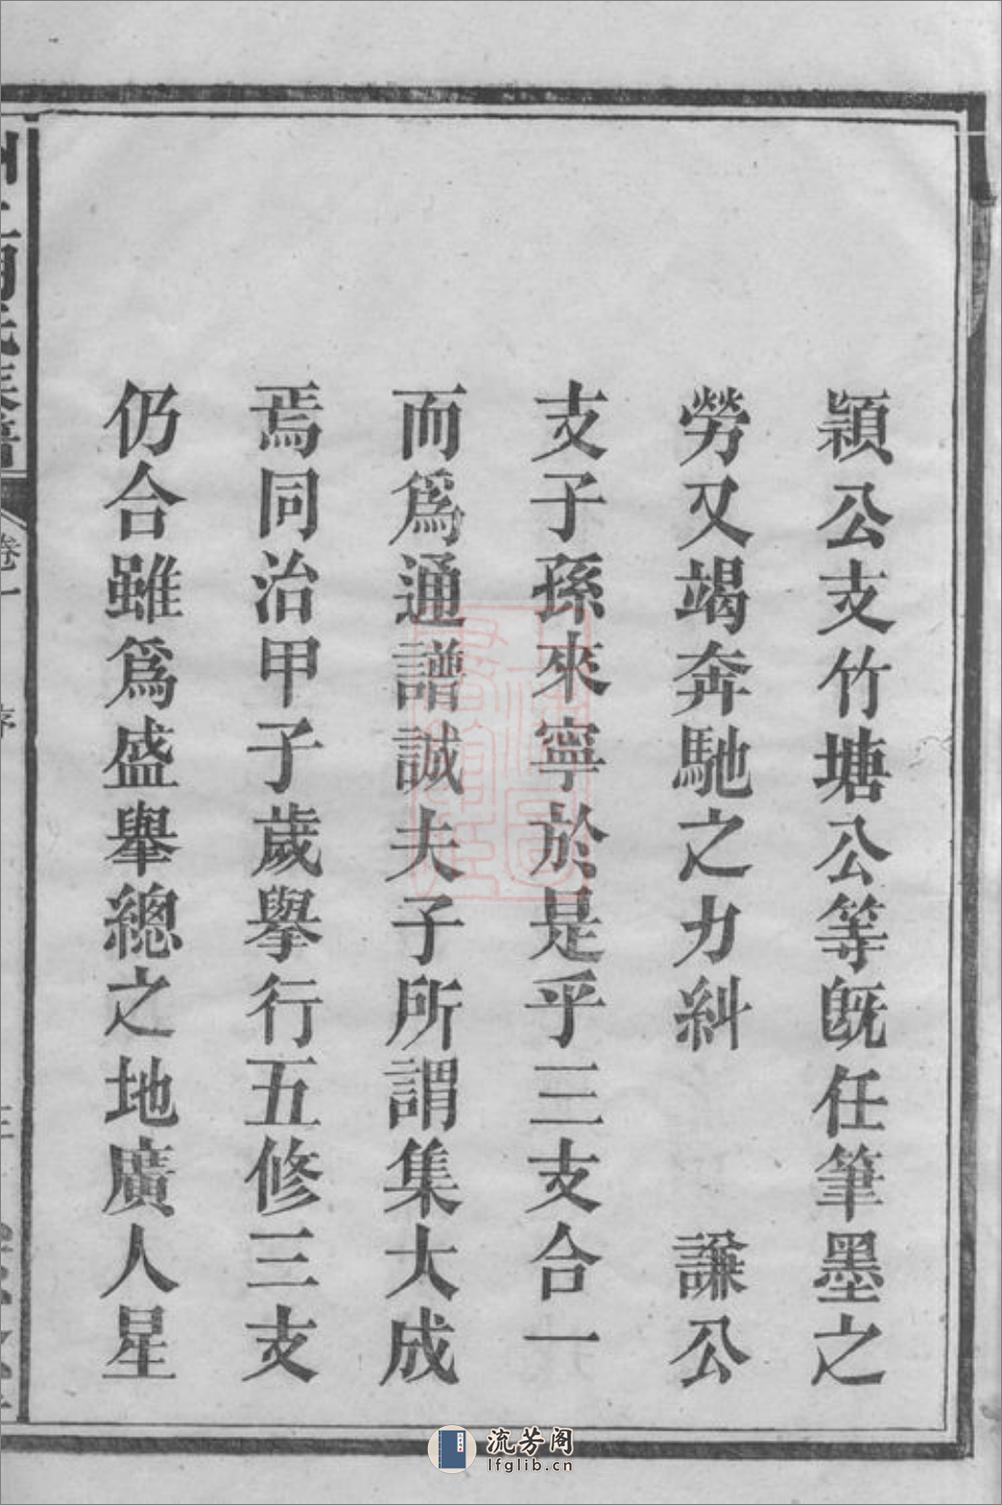 穎公支竹塘公等既任筆墨之
勞又竭奔馳之力糾　謙公
支子孫來寧於是乎三支合一
而爲通譜誠夫子所謂集大成
焉同治甲子歲擧行五修三支
仍合雖爲盛擧總之地廣人星
卷一
序
流芳阁
lfglib.cn